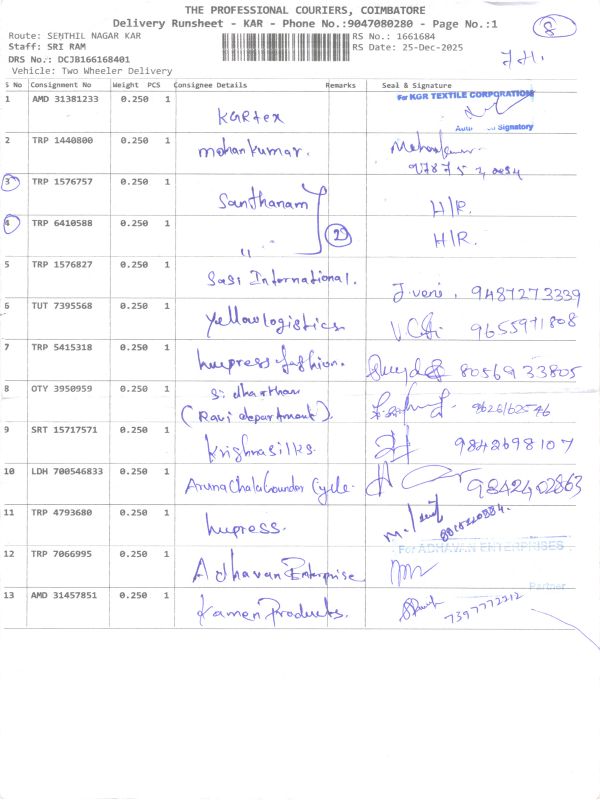 THE PROFESSIONAL COURIERS, COIMBATORE
Delivery Runsheet - KAR - Phone No.:9047080280 - Page No.:1
8
Route: SENTHIL NAGAR KAR
RS No.: 1661684
Staff: SRI RAM
RS Date: 25-Dec-2025
DRS No.: DCJB166168401
Vehicle: Two Wheeler Delivery
S No Consignment No Weight PCS Consignee Details Remarks Seal & Signature
1 AMD 31381233 0.250 1 KGRtex For KGR TEXTILE CORPORATION
Signatory
2 TRP 1440800 0.250 1 mohankumar.
3 TRP 1576757 0.250 1 Santhanam H/R.
4 TRP 6410588 0.250 1 " 2 H/R.
5 TRP 1576827 0.250 1 Sasi International. J.veni. 9487273339
6 TUT 7395568 0.250 1 Yellowlogistics 9655971808
7 TRP 5415318 0.250 1 Impress fashion. 8056933805
8 OTY 3950959 0.250 1 Sidharthan
(Ravi department). 9626162546
9 SRT 15717571 0.250 1 Krishnasilks. 9842698107
10 LDH 700546833 0.250 1 ArunaChalaGounder Cycle. 9842402863
11 TRP 4793680 0.250 1 Impress.
12 TRP 7066995 0.250 1 Adhavan Enterprise For ADHAVAN ENTERPRISES
Partner
13 AMD 31457851 0.250 1 Kamen Products. 7397772212